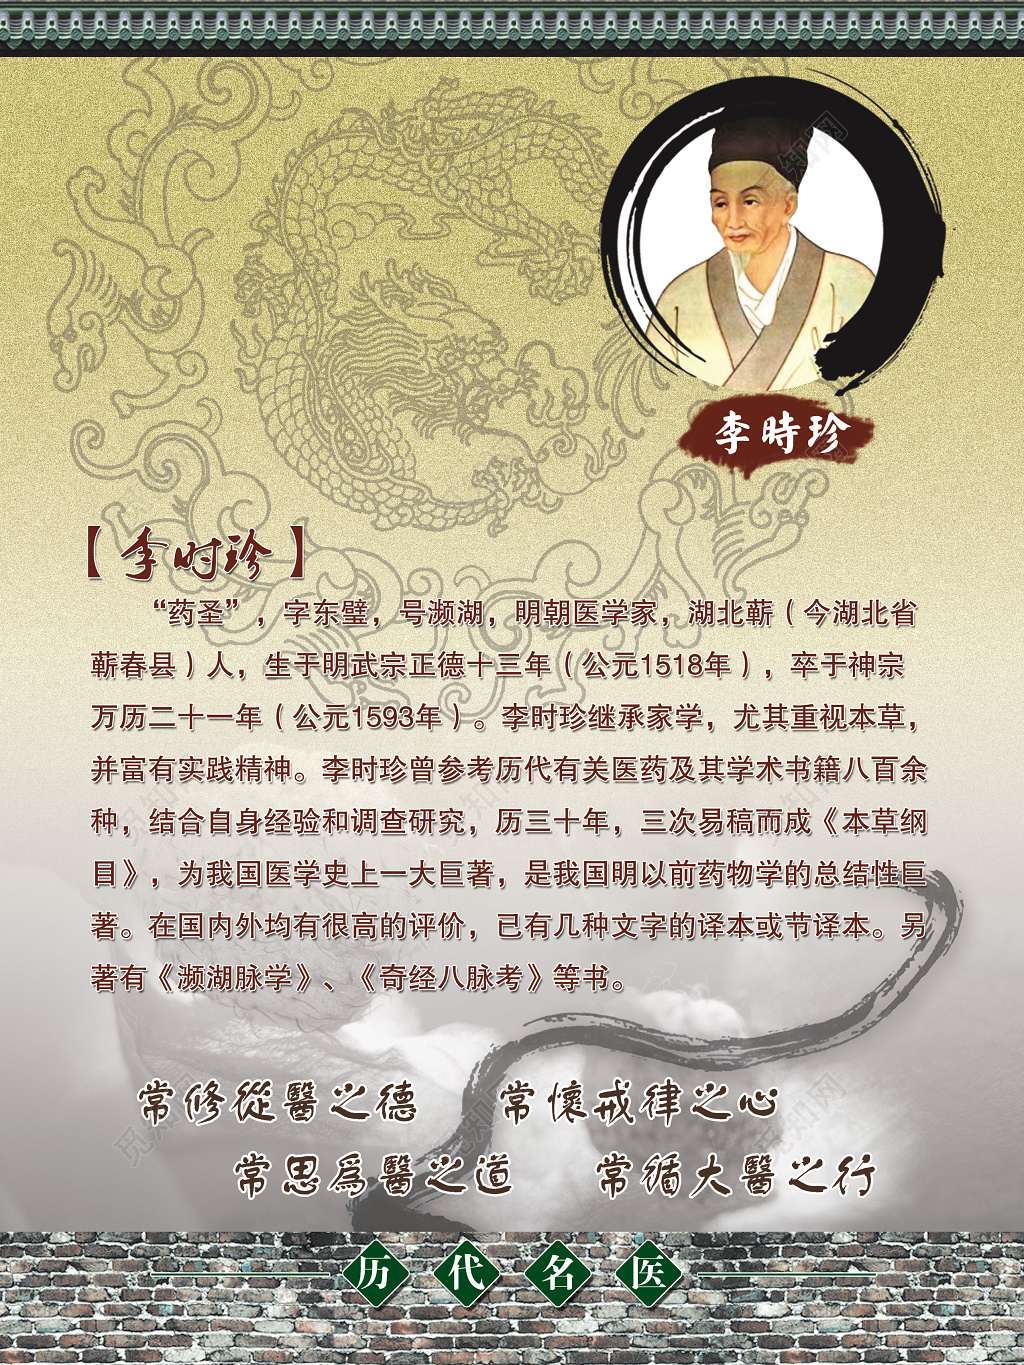 李時珍
【李时珍】
“药圣”，字东璧，号濒湖，明朝医学家，湖北蕲（今湖北省
蕲春县）人，生于明武宗正德十三年（公元1518年），卒于神宗
万历二十一年（公元1593年）。李时珍继承家学，尤其重视本草，
并富有实践精神。李时珍曾参考历代有关医药及其学术书籍八百余
种，结合自身经验和调查研究，历三十年，三次易稿而成《本草纲
目》，为我国医学史上一大巨著，是我国明以前药物学的总结性巨
著。在国内外均有很高的评价，已有几种文字的译本或节译本。另
著有《濒湖脉学》、《奇经八脉考》等书。
常修從醫之德 常懷戒律之心
常思爲醫之道 常循大醫之行
历代名医
觅知网